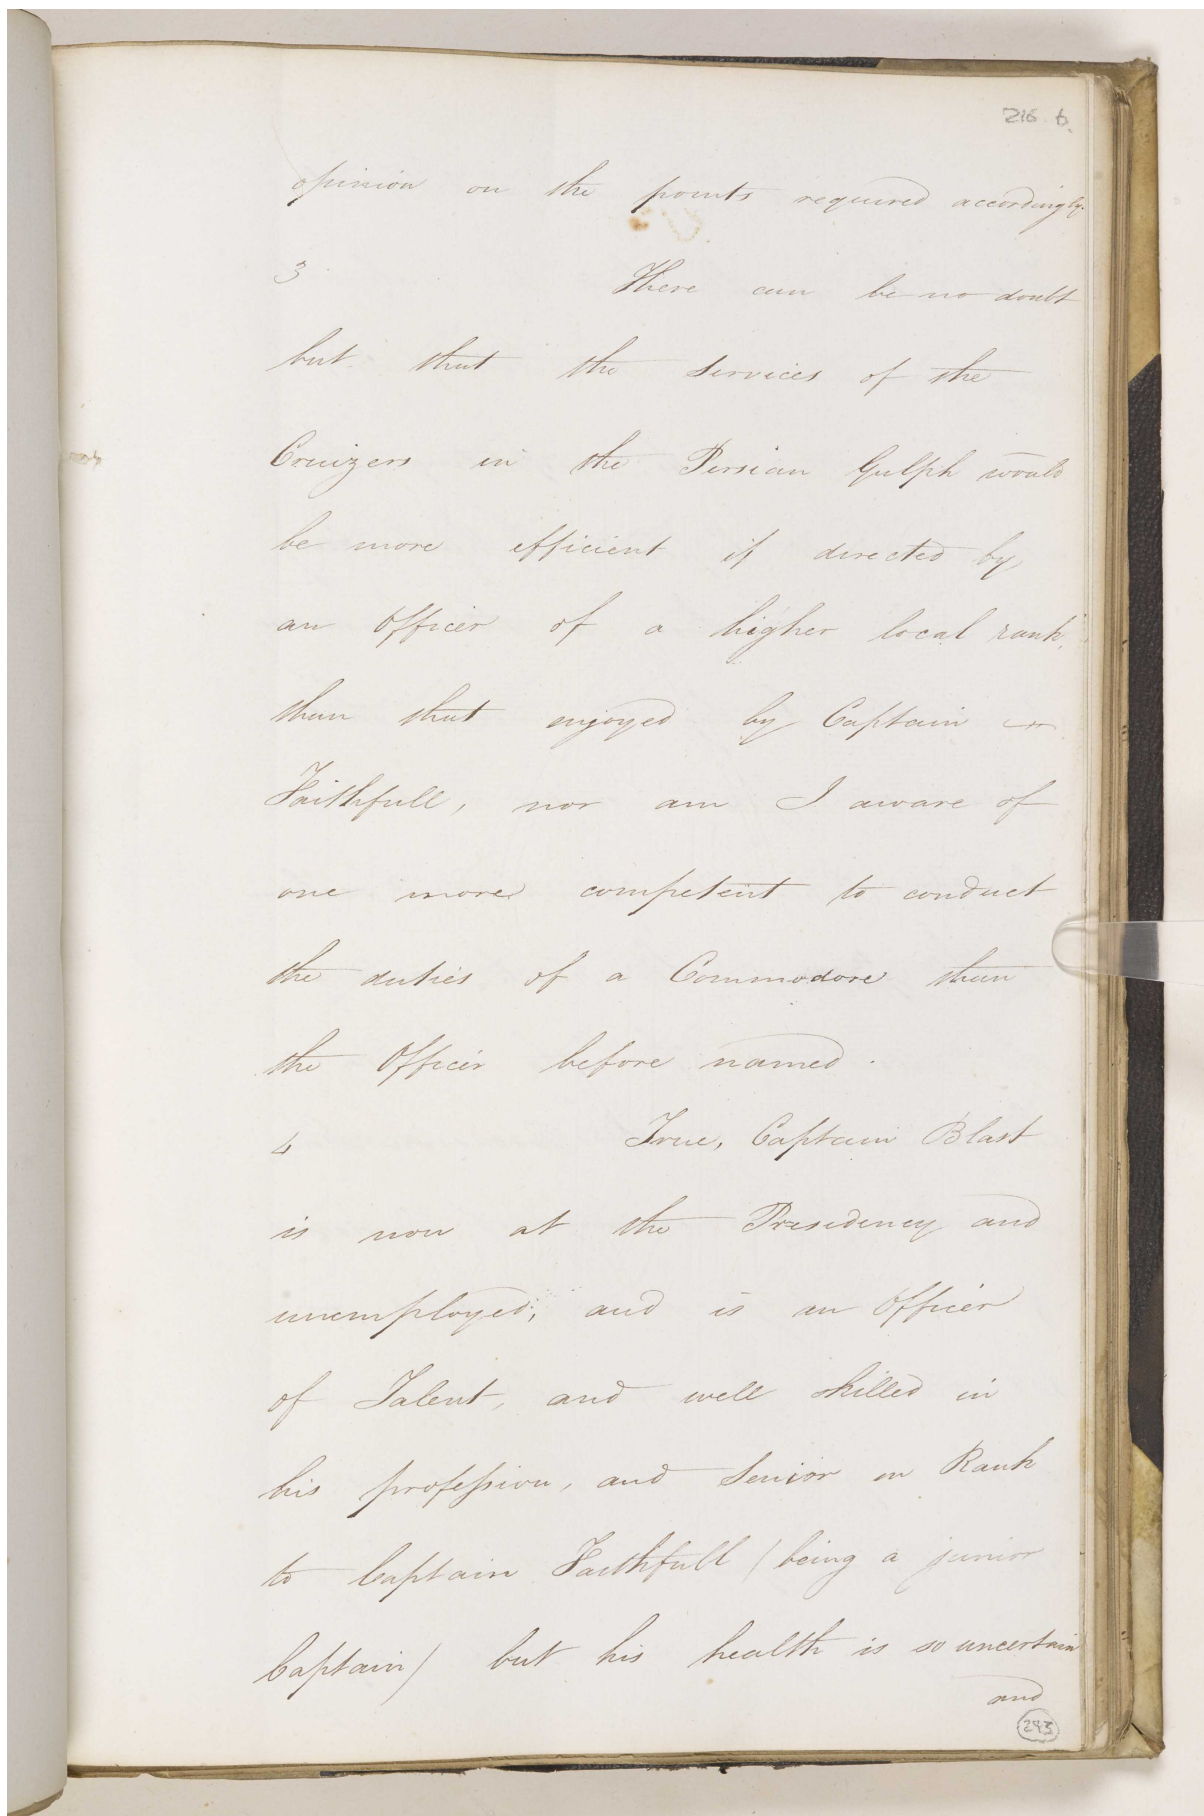 216 b.
opinion on the points required accordingly.
3 There can be no doubt
but that the Services of the
Cruizers in the Persian Gulph would
be more efficient if directed by
an Officer of a higher local rank,
than that enjoyed by Captain
Faithfull, nor am I aware of
one more competent to conduct
the duties of a Commodore than
the Officer before named.
4 True, Captain Blast
is now at the Presidency and
unemployed; and is an Officer
of Talent, and well skilled in
his profession, and Senior in Rank
to Captain Faithfull / being a junior
Captain / but his health is so uncertain
and
243